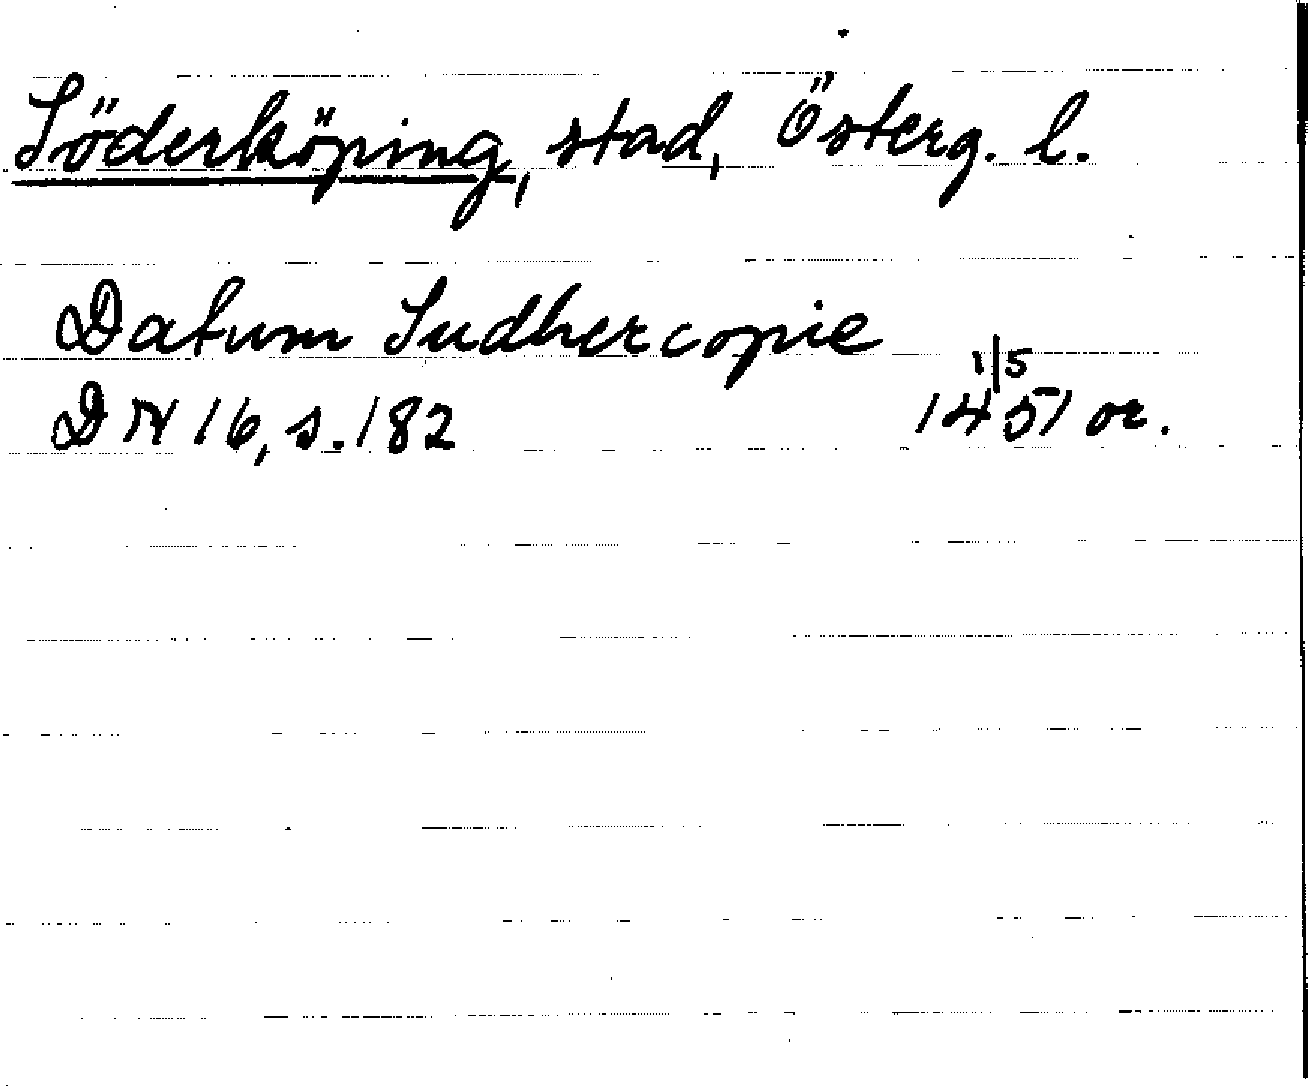 Söderköping, stad, Österg. l.
Datum Sudhercopie
DN 16, s. 182 1/5 1451 or.